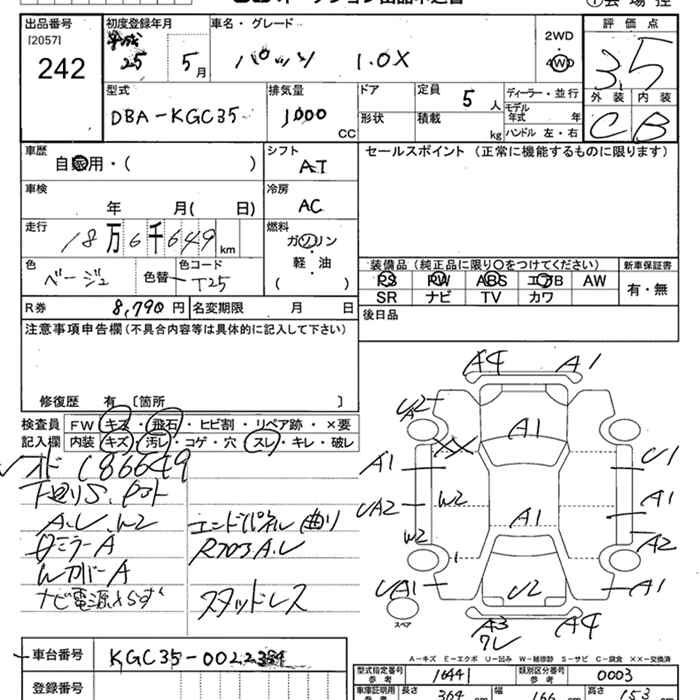 出品番号 初度登録年月 車名・グレード 2WD 評価点
[2057] 平成
242 25 5月 パッソ 1.0X 4WD 3.5
型式 排気量 ドア 定員 5人 ディーラー・並行 外装 内装
DBA-KGC35 1000CC 形状 積載 kg モデル年式 年 C B
ハンドル 左・右
車歴 自家用・( ) シフト AT セールスポイント(正常に機能するものに限ります)
車検 年 月( 日) 冷房 AC
走行 18万6千649km 燃料 ガソリン
軽・油
( )
色 ベージュ 色替 色コード T25 装備品(純正品に限り○をつけてください) 新車保証書
PS PW ABS エアB AW 有・無
R券 8,790円 名変期限 月 日 SR ナビ TV カワ
注意事項申告欄(不具合内容等は具体的に記入して下さい) 後日品
修復歴 有〔箇所 〕
検査員 FW キズ・飛石・ヒビ割・リペア跡・×要
記入欄 内装 キズ・汚レ・コゲ・穴・スレ・キレ・破レ
186649
下廻りS
A.U.W2 エンドパネル曲り
ミラーA
WカバーA
ナビ電源入らず スタッドレス
A4 A1
UA2
A1
A1 U1
UA2 W2 A1
W2 A1 A2
UA1 U2 A1
スペア A3 A4
ワレ
A-キズ E-エクボ U-凹み W-補修跡 S-サビ C-腐食 ××-交換済
車台番号 KGC35-0022354
登録番号
型式指定番号 参考 16441 類別区分番号 参考 0003
車庫証明用 参考 長さ 364 幅 166 高さ 153